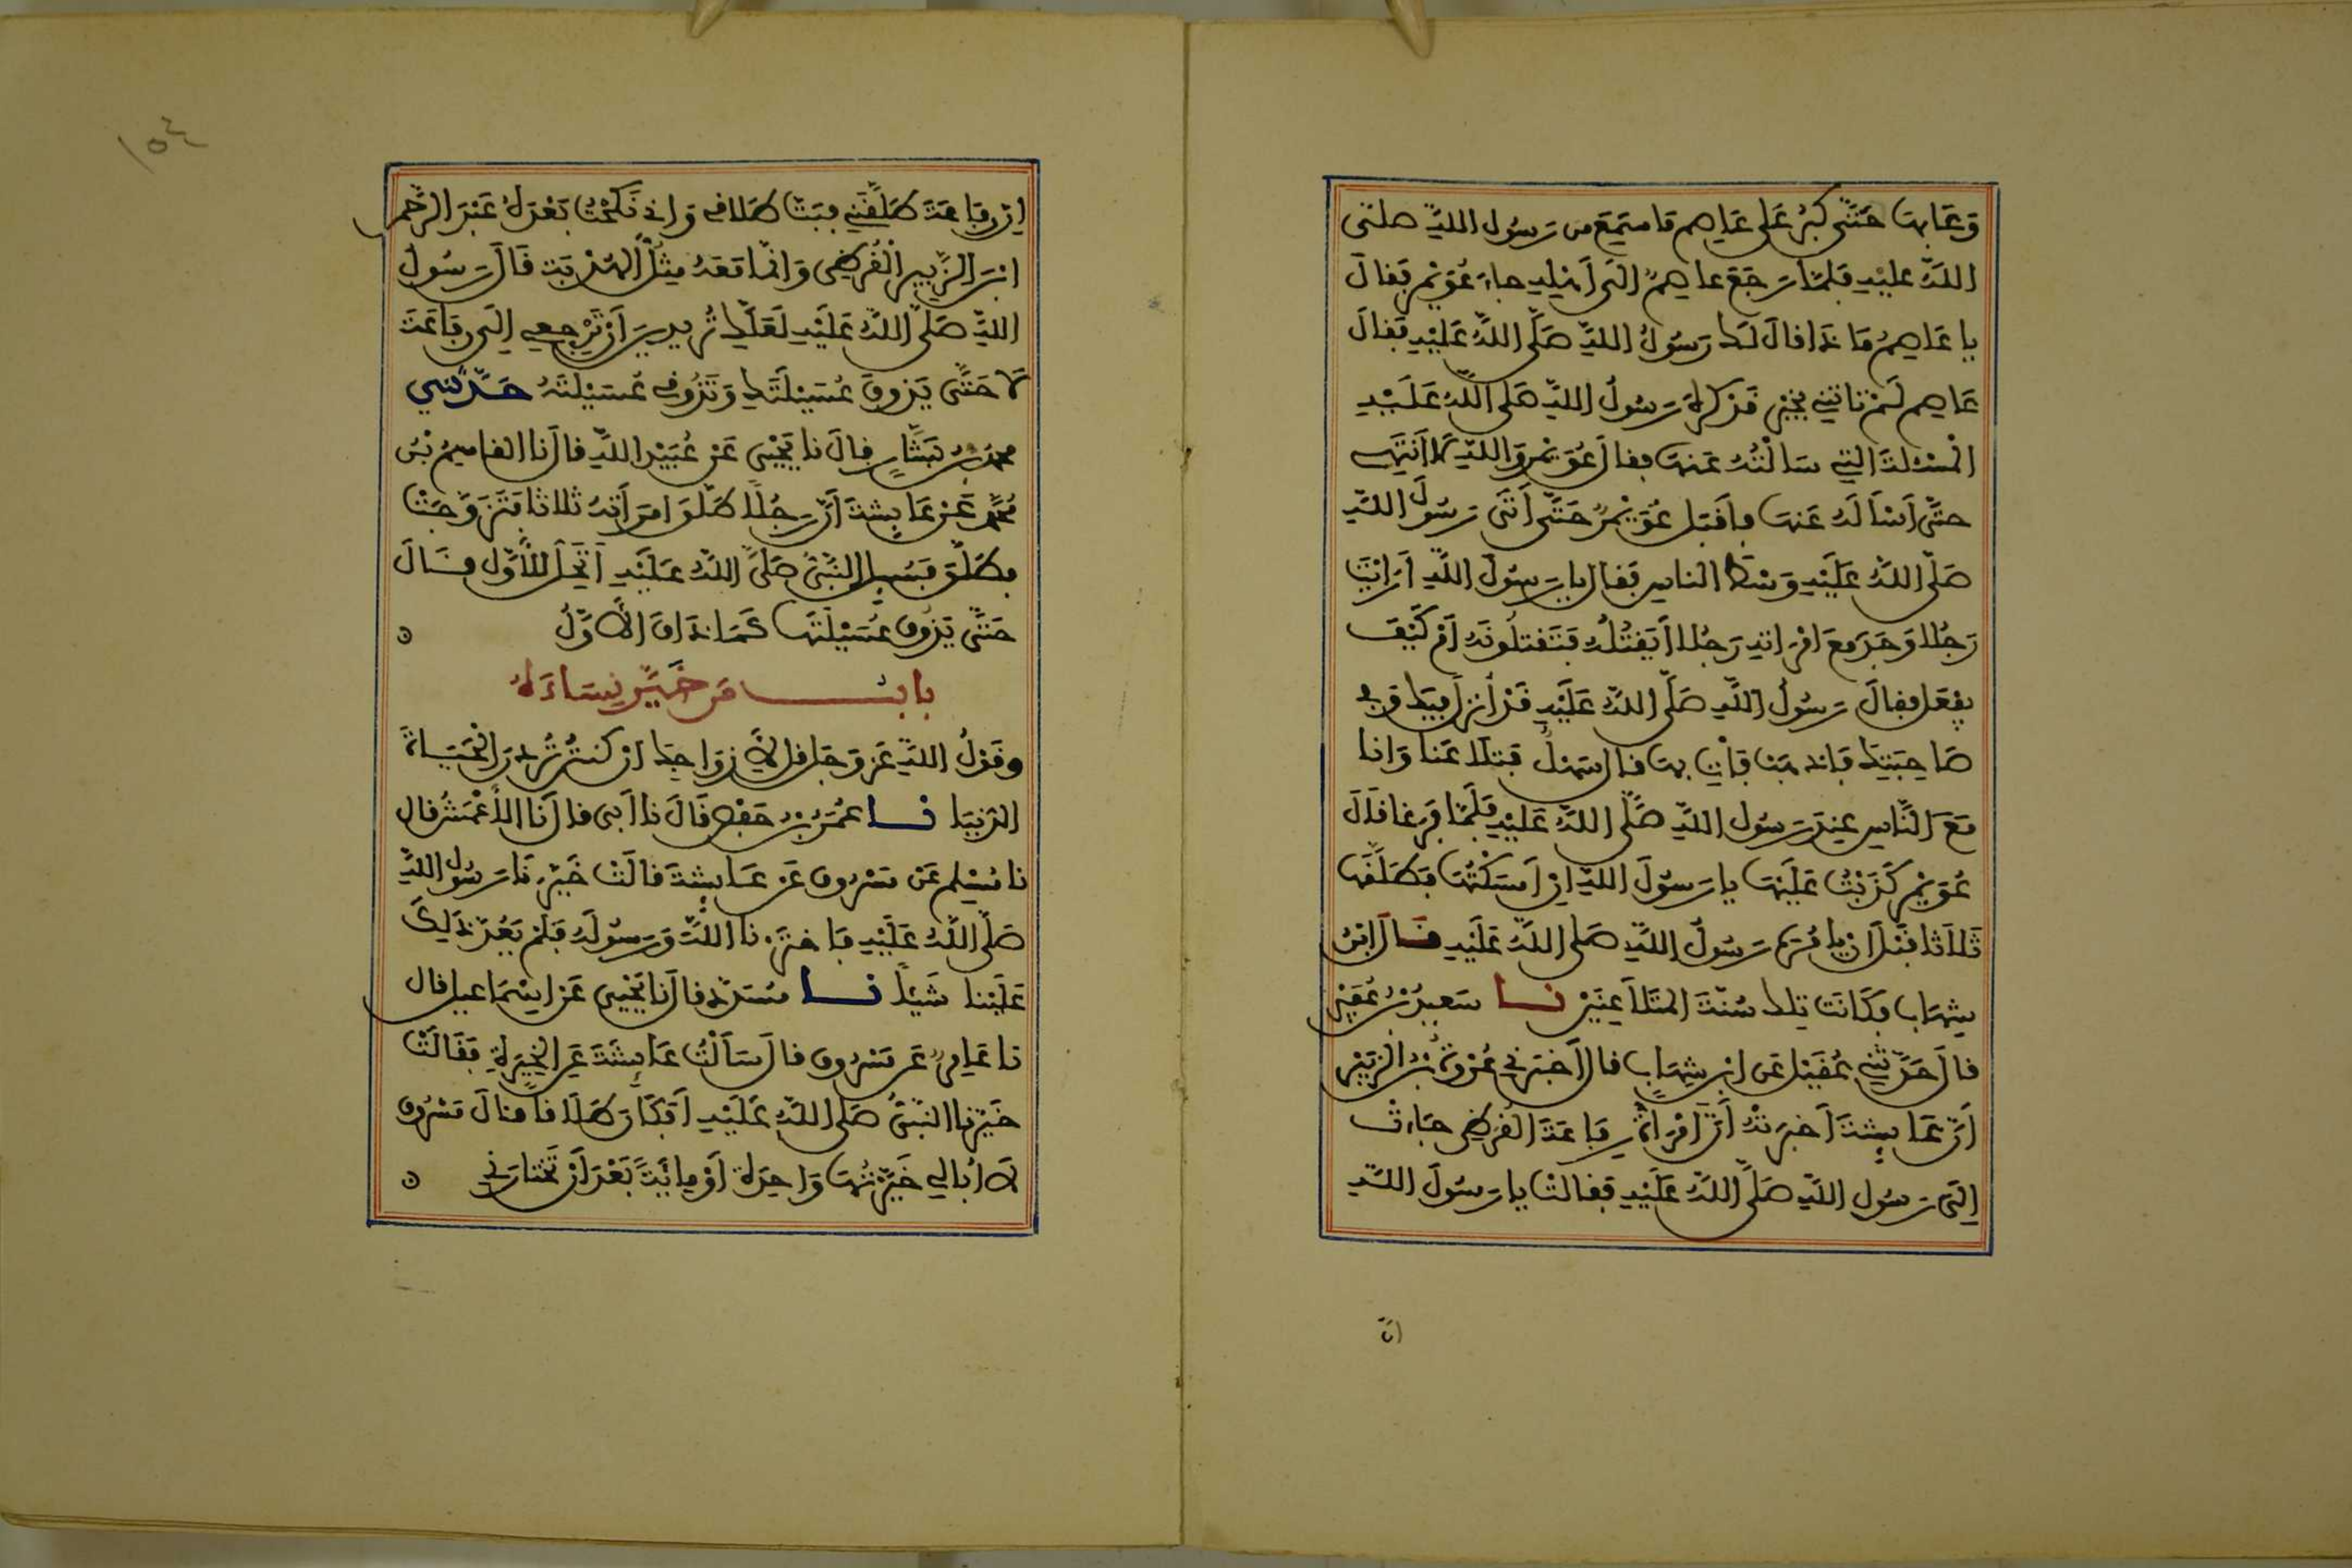 وَعَابَهَا حَتَّى كَبُرَ عَلَى عَاصِمٍ مَا سَمِعَ مِن رَسُولِ اللَّهِ صلى
اللَّهُ عَلَيْهِ فَلَمَّا رَجَعَ عاصِمٌ إِلَى أَهْلِهِ جاءَ عُوَيْمِرٌ فَقالَ
يا عَاصِمُ مَا ذا قالَ لَكَ رَسُولُ اللَّهِ صَلَّى اللَّهُ عَلَيْهِ فَقالَ
عَاصِم لَمْ تَاتِنِي بِخَيْرٍ قَدْ كَرِهَ رَسُولُ اللَّهِ صَلى اللَّهُ عَلَيْهِ
الْمَسْئَلَةَ التِي سَالْتُهُ عَنهَا فقالَ عُوَيْمِر وَاللَّهِ لا أَنتَهِي
حتَّى أَسْأَلَهُ عَنهَا فأَقْبَلَ عُوَيْمِرٌ حَتَّى أَتَى رَسُولَ اللَّهِ
صَلَّى اللَّهُ عَلَيْهِ وَسْطَ الناسِ فَقالَ يا رَسُولَ اللَّهِ أَرَايْتَ
رَجُلا وَجَدَ مَعَ امْرَاتِهِ رَجُلا أَيَقْتُلُهُ فَتَقتلُونَهُ أَمْ كَيْفَ
يفْعَل فقالَ رَسُولُ اللَّهِ صَلَّى اللَّهُ عَلَيْهِ قَدْ أُنزِلَ فِيكَ وفي
صَاحِبَتِكَ فَاذهَبْ فَأْتِ بِهَا قالَ سَهْلٌ فَتَلاعَنا وَانا
مَعَ النَّاسِ عِندَ رَسُولِ اللَّهِ صَلَّى اللَّهُ عَلَيْهِ فَلَمَّا فَرَغا قَالَ
عُوَيْمِر كَذَبْتُ عَلَيْهَا يا رَسُولَ اللَّهِ إِنْ أَمسَكْتُهَا فَطَلَّقَهَا
ثَلاَثا قَبْلَ أن يامُرَه رَسُولُ اللَّهِ صَلى اللَّهُ عَلَيْهِ قَالَ ابْنُ
شِهَاب فكَانَت تِلكَ سُنَّةَ المتَلاَعِنَيْنِ نا سَعِيدُ بْنُ عُفَيْرٍ
قالَ حَدَّثَنِي عُقَيْل عَن ابْنِ شِهَابٍ قالَ أَخبَرَني عُرْوَةُ بْنُ الزبَيْرِ
أَنَّ عَايِشَةَ أَخبرَتْهُ أَنَّ امْرَأَةَ رِفَاعَةَ القُرَظِي جَاءتْ
إِلَى رَسُولِ اللَّهِ صَلَّى اللَّهُ عَلَيْهِ فَقالتْ يا رَسُولَ اللَّهِ
ان
١٥٤
إنَّ رِفَاعَةَ طَلَّقَنِي فَبَتَّ طَلاقِي وَإني نَكَحْتُ بَعْدَهُ عَبْدَ الرَّحْمن
ابْنَ الزَّبِيرِ الْقُرَظِي وَإنَّما مَعَهُ مِثْلُ الهُدْبَةِ قَالَ رَسُولُ
اللَّهِ صَلَّى اللَّهُ عَلَيْهِ لَعَلَّكِ تُرِيدِينَ أَنْ تَرْجِعِي إِلَى رِفَاعَةَ
لا حَتَّى يَذوقَ عُسَيْلَتَكِ وَتَذُوقِي عُسَيْلَتَهُ حَدَّثَنِي
محمدُ بْنُ بَشَّارٍ قالَ نا يَحْيَى عَنْ عُبَيْدِ اللَّهِ قالَ نا القاسِمُ بْنُ
مُحَمَّدٍ عَنْ عَايِشَةَ أَنَّ رَجُلًا طَلَّقَ امرَأَتَهُ ثلاثا فَتَزَوَّجَتْ
فطَلَّقَ فَسُيِلَ النَّبِيُّ صَلَّى اللَّهُ عَلَيْهِ أَتَحِلُّ لِلأَوَّلِ قَالَ
حَتَّى يَذُوقَ عُسَيْلَتَهَا كَمَا ذَاقَ الأَوَّلُ
بابُ مَن خَيَّرَ نِسَاءَهُ
وقَوْلُ اللَّهِ عَزَّ وَجَلَّ قل لأَزوَاجِكَ إن كنتُنَّ تُرِدْنَ الْحَيَاةَ
الدُّنيَا نا عُمَرُ بْنُ حَفْصٍ قَالَ نا أَبِي قالَ نَا الأَعْمَشُ قال
نا مُسْلِم عَن مَسْرُوقٍ عَن عَايِشَةَ قالَتْ خَيَّرَنَا رَسُولُ اللَّهِ
صَلَّى اللَّهُ عَلَيْهِ فَاختَرْنا اللَّهَ وَرَسُولَهُ فَلَمْ يَعُدَّ ذَلِكَ
عَلَيْنا شَيْئًا نا مُسَدَّدٌ قالَ نا يَحْيَى عَنْ إسْمَاعيلَ قال
نا عَامِرٌ عَن مَسْرُوقٍ قالَ سَأَلْتُ عَايِشَةَ عَنِ الْخِيَرَةِ فَقَالَتْ
خَيَّرَنا النَّبِيُّ صَلى اللَّهُ عَلَيْهِ أَفَكَانَ طَلَاقًا قالَ مَسْرُوق
لا أُبَالِي خَيَّرْتُهَا وَاحِدَةً أَوْ مِايَةً بَعْدَ أَنْ تَخْتارَنِي